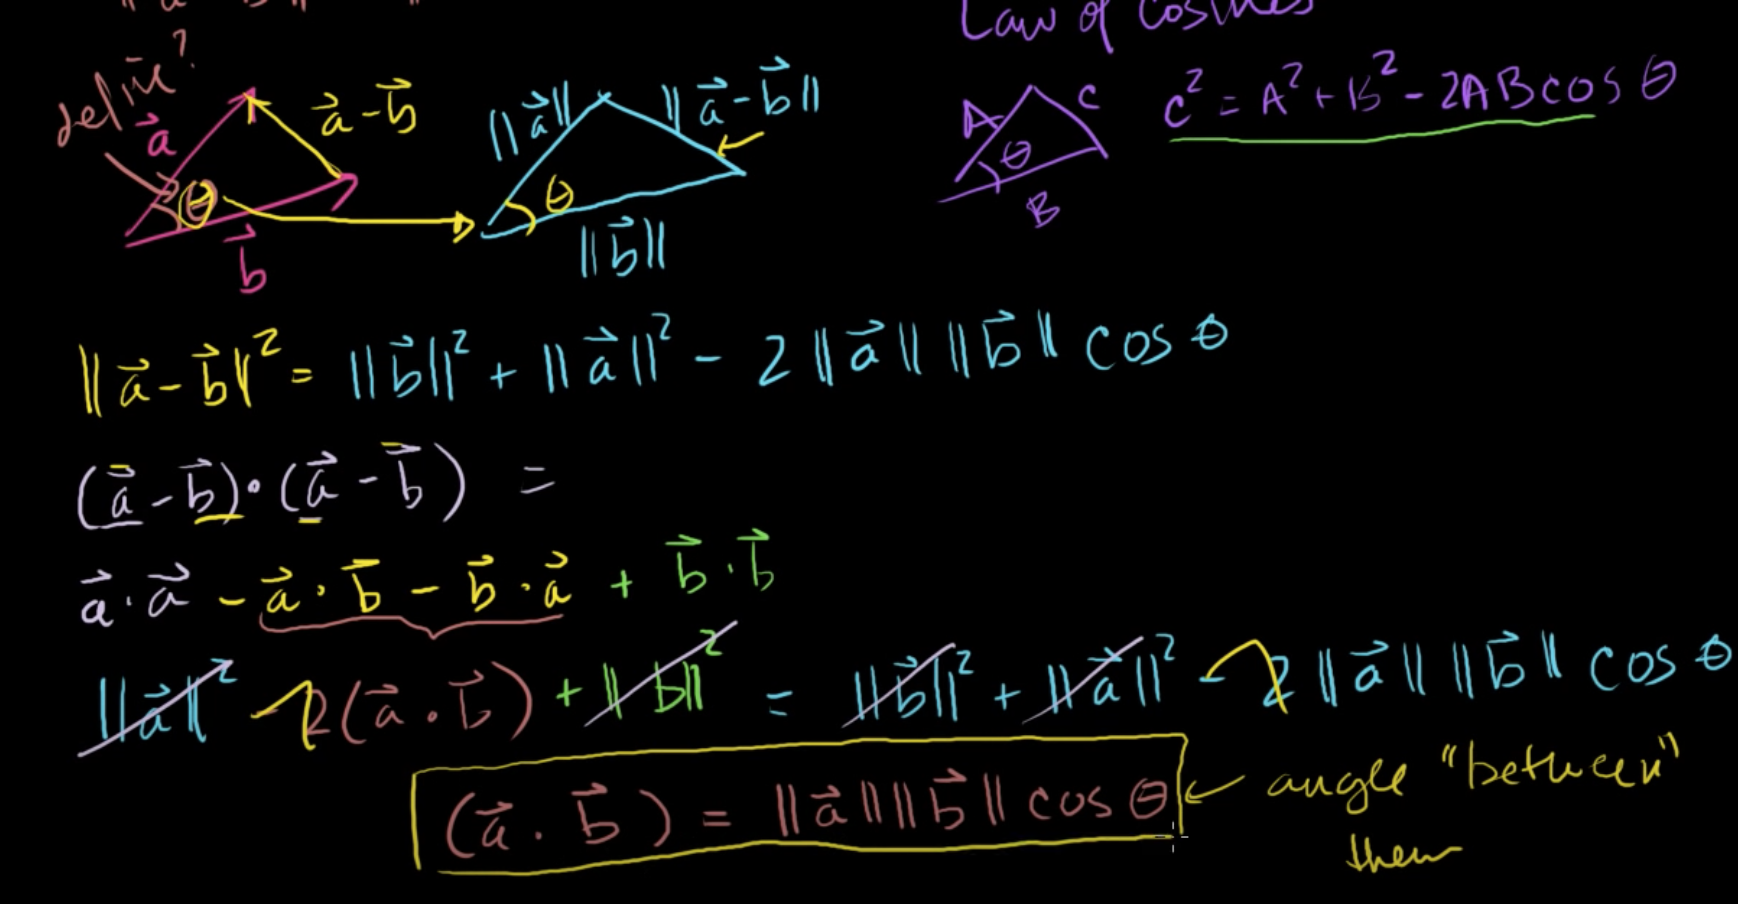 Law of Cosines
define?
a⃗
a⃗-b⃗
θ
b⃗
||a⃗||
||a⃗-b⃗||
θ
||b⃗||
A
C
θ
B
C² = A² + B² - 2AB cos θ
||a⃗-b⃗||² = ||b⃗||² + ||a⃗||² - 2||a⃗|| ||b⃗|| cos θ
(a⃗-b⃗)·(a⃗-b⃗) =
a⃗·a⃗ - a⃗·b⃗ - b⃗·a⃗ + b⃗·b⃗
||a⃗||² - 2(a⃗·b⃗) + ||b||² = ||b⃗||² + ||a⃗||² - 2||a⃗|| ||b⃗|| cos θ
(a⃗·b⃗) = ||a⃗|| ||b⃗|| cos θ
angle "between"
them